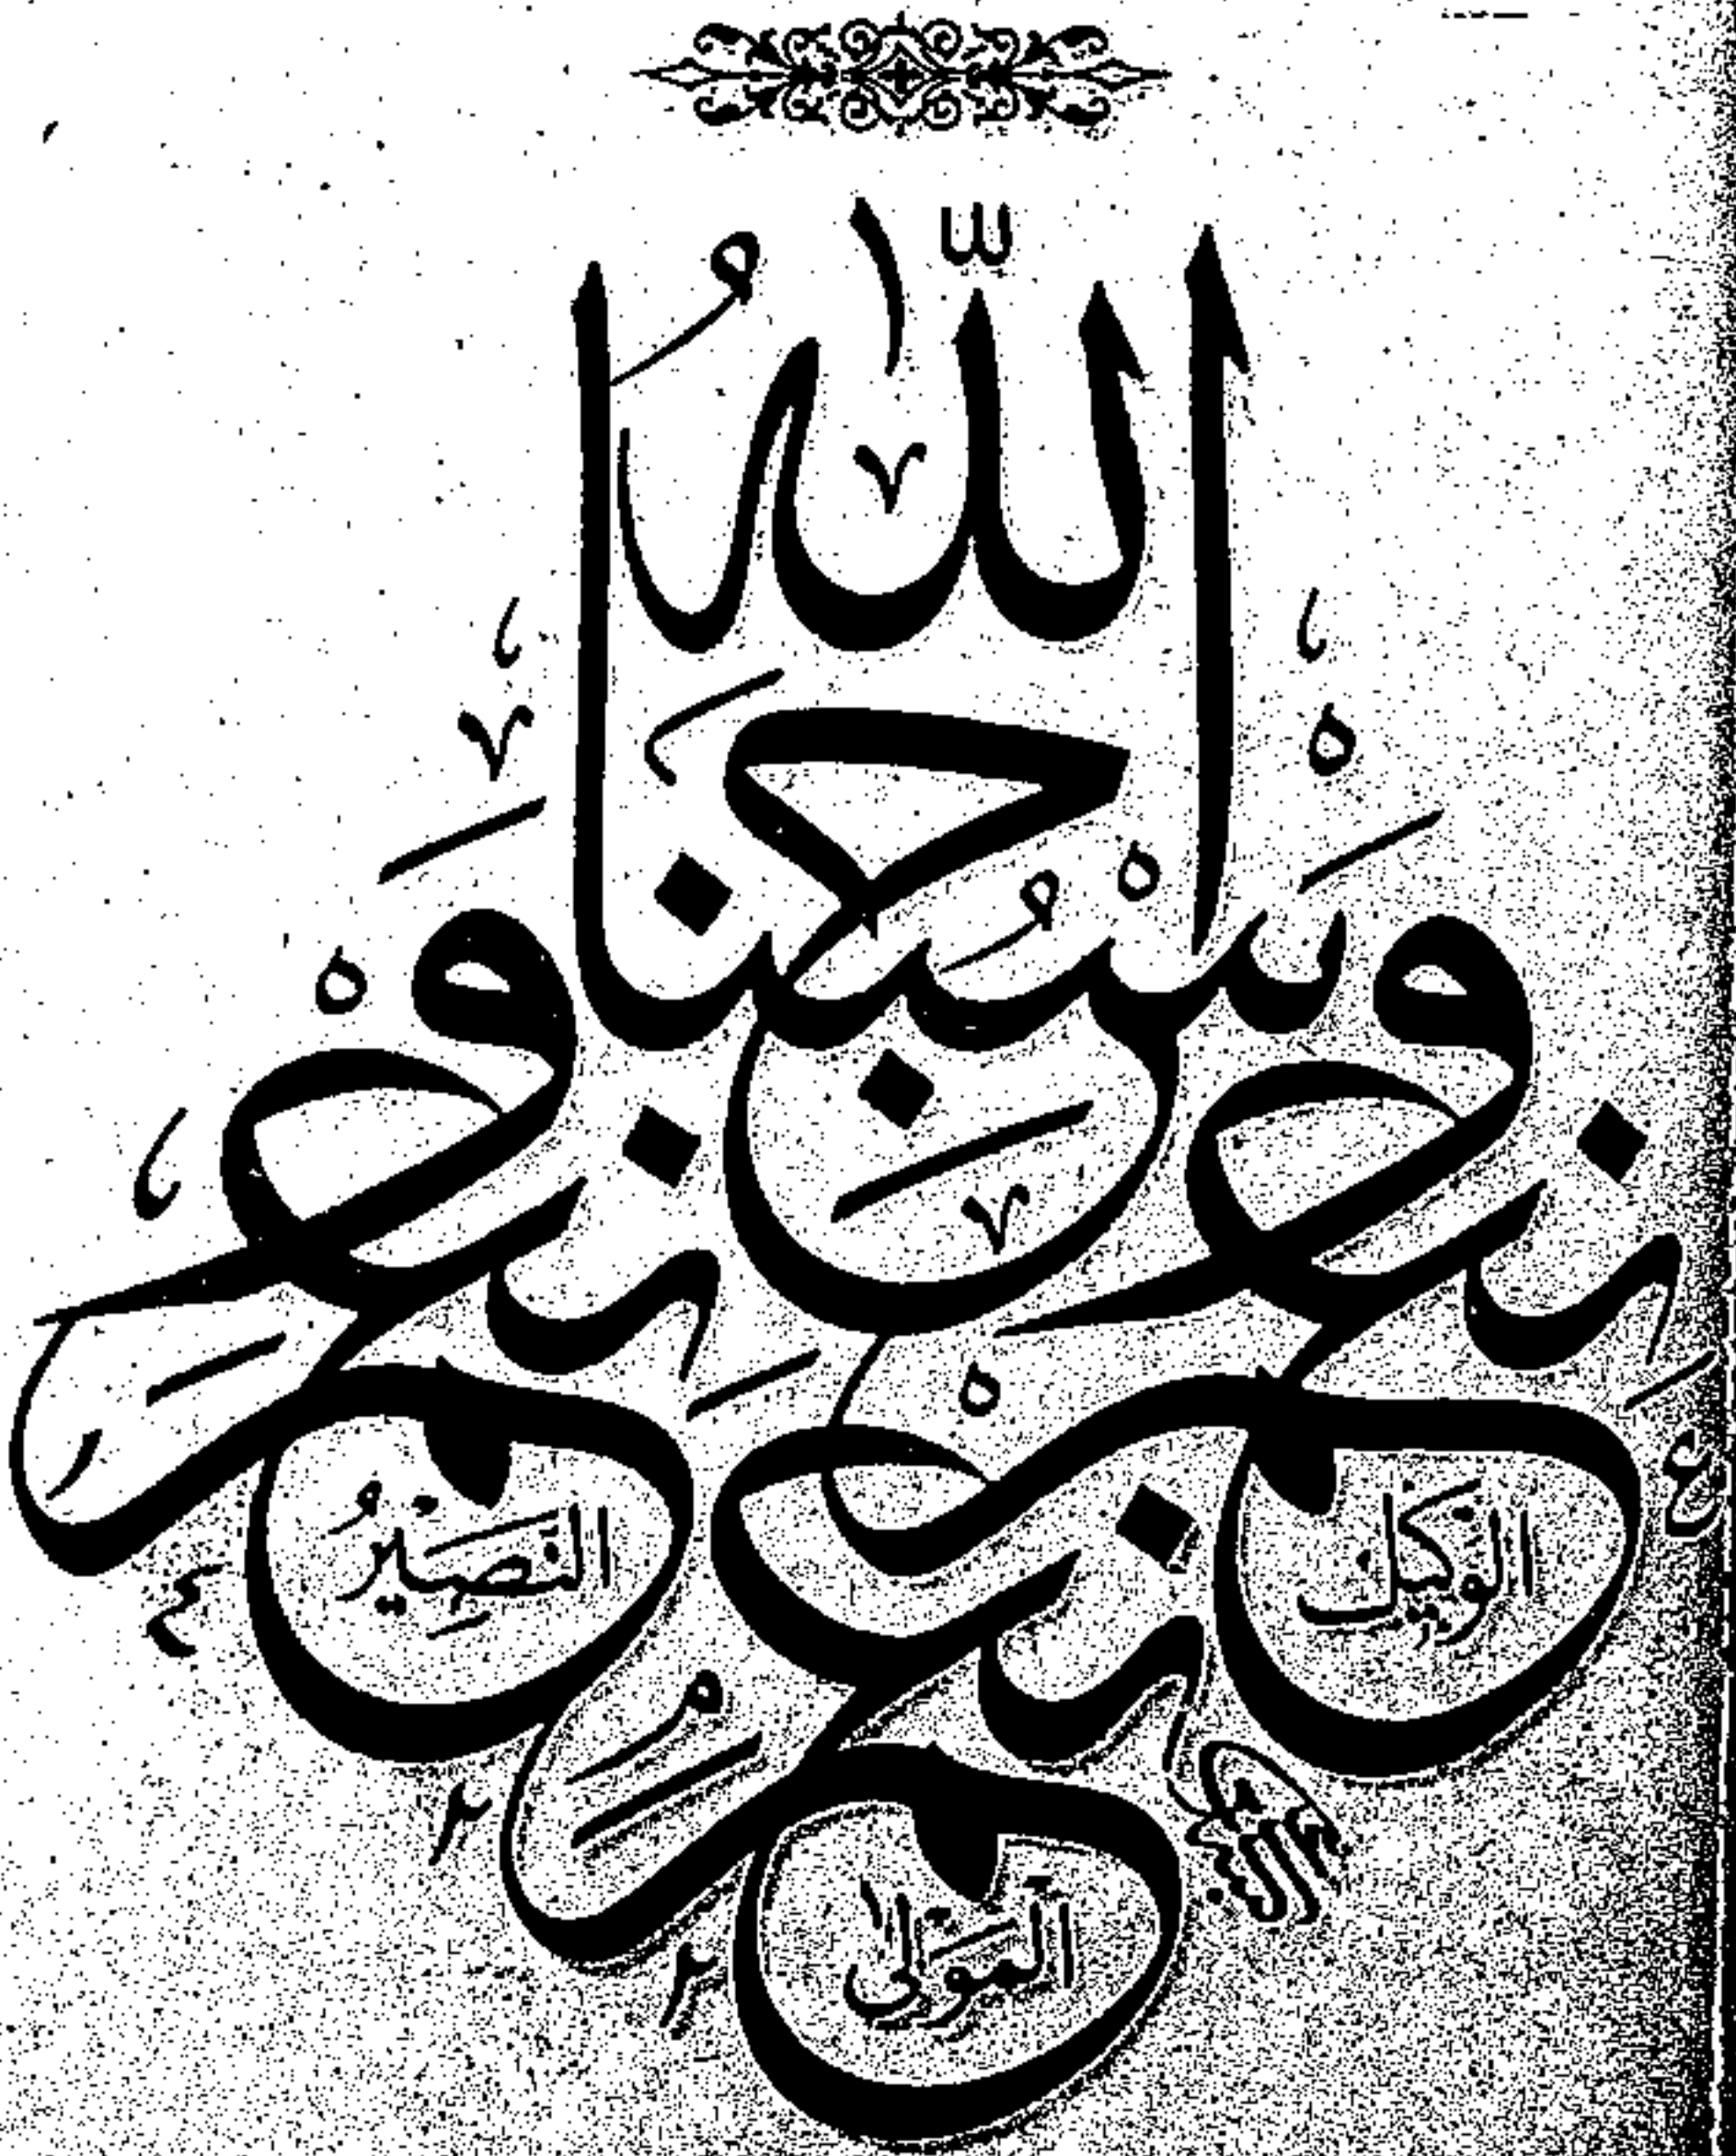 حسبنا الله
ونعم الوكيل
نعم المولى
ونعم النصير